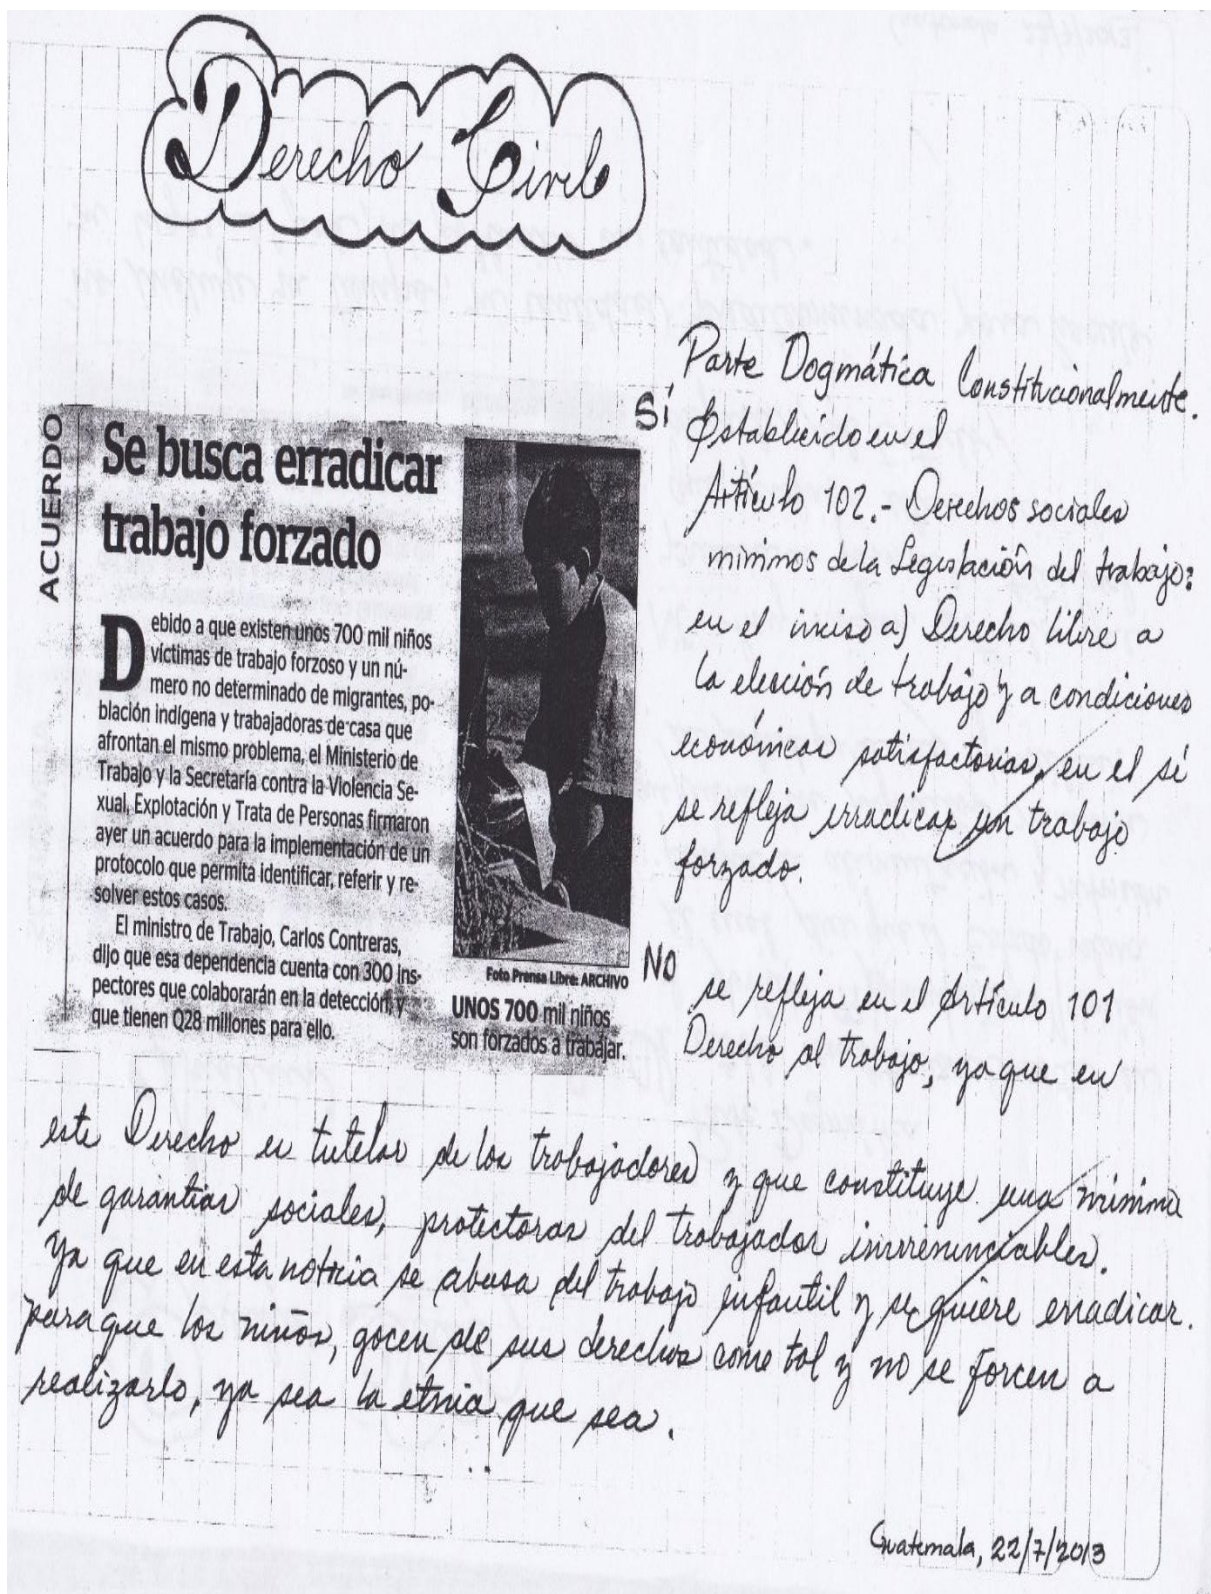 Derecho Civil
ACUERDO
Se busca erradicar
trabajo forzado
Debido a que existen unos 700 mil niños
víctimas de trabajo forzoso y un nú-
mero no determinado de migrantes, po-
blación indígena y trabajadoras de casa que
afrontan el mismo problema, el Ministerio de
Trabajo y la Secretaría contra la Violencia Se-
xual, Explotación y Trata de Personas firmaron
ayer un acuerdo para la implementación de un
protocolo que permita identificar, referir y re-
solver estos casos.
El ministro de Trabajo, Carlos Contreras,
dijo que esa dependencia cuenta con 300 ins-
pectores que colaborarán en la detección, y
que tienen Q28 millones para ello.
Foto Prensa Libre: ARCHIVO
UNOS 700 mil niños
son forzados a trabajar.
Parte Dogmática Constitucionalmente.
SÍ
Establecido en el
Artículo 102.- Derechos sociales
minimos de la Legislación del trabajo:
en el inciso a) Derecho libre a
la elección de trabajo y a condiciones
económicas satisfactorias, en el sí
se refleja erradicar un trabajo
forzado.
NO
se refleja en el Artículo 101
Derecho al trabajo, ya que en
este Derecho es tutelar de los trabajadores y que constituye una minima
de garantías sociales, protectoras del trabajador inrrenunciables.
Ya que en esta noticia se abusa del trabajo infantil y se quiere erradicar.
para que los niños, gocen de sus derechos come tal y no se forcen a
realizarlo, ya sea la etnia que sea.
Guatemala, 22/7/2013